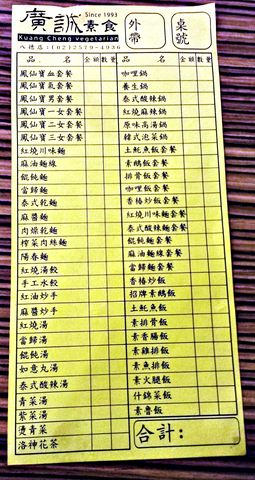 廣誠素食
Since 1993
Kuang Cheng vegetarian
八德店:(02)2579-4936
外帶
桌號
品名 金額 數量 品名 金額 數量
鳳仙寶血套餐 咖哩鍋
鳳仙寶氣套餐 養生鍋
鳳仙寶男套餐 泰式酸辣鍋
鳳仙寶一女套餐 紅燒麻辣鍋
鳳仙寶二女套餐 原味高湯鍋
鳳仙寶三女套餐 韓式泡菜鍋
紅燒川味麵 土魠魚飯套餐
麻油麵線 素鵝飯套餐
餛飩麵 排骨飯套餐
當歸麵 咖哩飯套餐
泰式乾麵 香椿炒飯套餐
麻醬麵 紅燒川味麵套餐
肉燥乾麵 泰式酸辣麵套餐
榨菜肉絲麵 餛飩麵套餐
陽春麵 麻油麵線套餐
紅燒湯餃 當歸麵套餐
手工水餃 香椿炒飯
紅油炒手 招牌素鵝飯
麻醬炒手 土魠魚飯
紅燒湯 素排骨飯
當歸湯 素香腸飯
餛飩湯 素雞排飯
如意丸湯 素魚排飯
泰式酸辣湯 素火腿飯
青菜湯 什錦菜飯
紫菜湯 素魯飯
燙青菜
洛神花茶
合計: